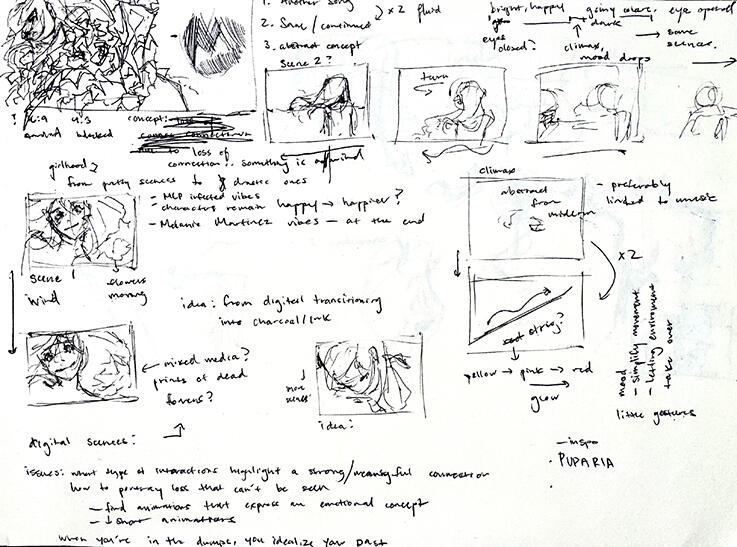 1. Another song
2. Same / continued
3. abstract concept
x2 fluid
bright, happy → gloomy colors, eye opened
dark
eyes
closed?
climax,
mood drops
→ some
scences.
scene 2?
turn
16:9 4:3 concept:
blocked
loss of
connection?. something is
girlhood?
from pretty scences to drastic ones
- MLP infected vibes
- characters remain happy → happier?
- Melanie Martinez vibes — at the end
scene 1
wind
flowers
moving
idea: from digital transitioning
into charcoal/ink
climax
abstract
from
- preferably
linked to music
x2
red string?
yellow → pink → red
glow
mood
- simplify movement
- letting enviroment
take over
little gestures
← mixed media?
prints of dead
flowers?
more
scences
idea:
digital scences:
issues: what type of interactions highlight a strong/meaningful connection
how to portray loss that can't be seen
- find animations that express an emotional concept
- ↓ short animations
when you're in the dumps, you idealize your past
- inspo
· PUPARIA